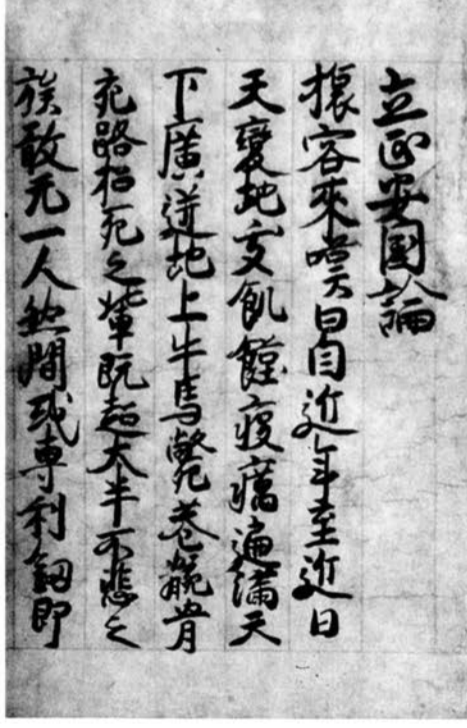 立正安国論
旅客來嘆曰自近年至近日
天變地夭飢饉疫癘遍滿天
下廣迸地上牛馬斃巷骸骨
充路招死之輩既超大半不悲之
族敢无一人然間或専利釼即